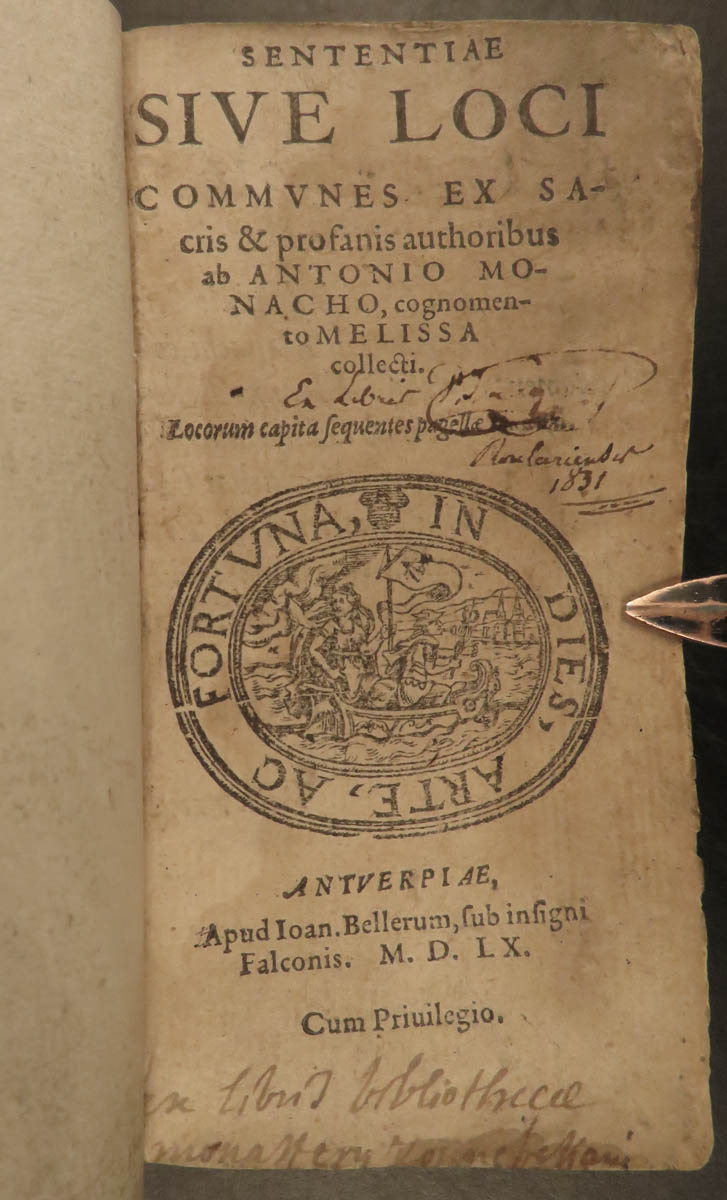 SENTENTIAE
SIVE LOCI
COMMVNES EX SA-
cris & profanis authoribus
ab ANTONIO MO-
NACHO, cognomen-
to MELISSA
collecti.
Ex Libris
Locorum capita sequentes pagellæ
1831
FORTVNA, IN DIES, ARTE, AC
ANTVERPIAE,
Apud Ioan. Bellerum, sub insigni
Falconis. M. D. LX.
Cum Priuilegio.
ex libris bibliothecæ
monastery